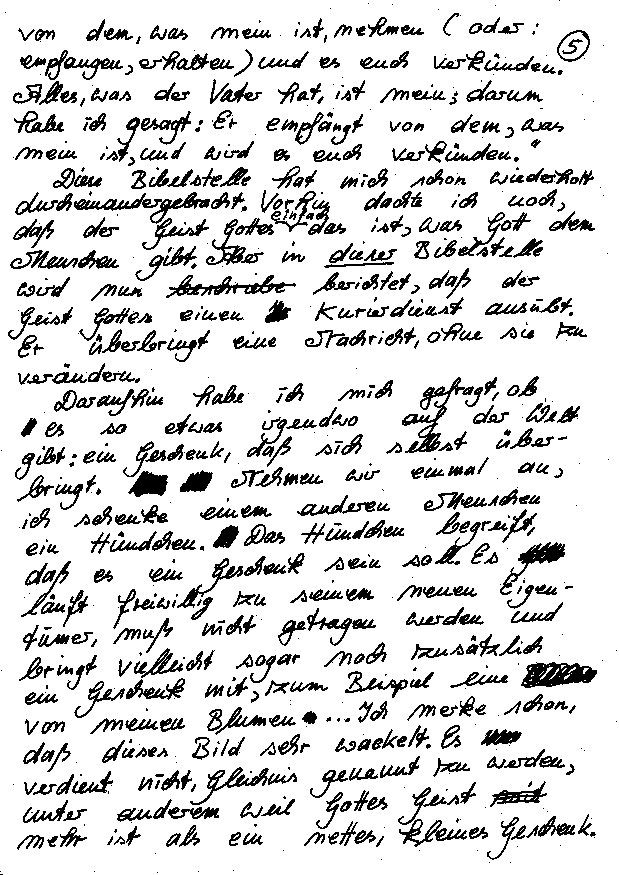 von dem, was mein ist, nehmen (oder:
⑤
empfangen, erhalten) und es euch verkünden.
Alles, was der Vater hat, ist mein; darum
habe ich gesagt: Er empfängt von dem, was
mein ist, und wird es euch verkünden."
Diese Bibelstelle hat mich schon wiederholt
durcheinandergebracht. Vorhin dachte ich noch,
daß der Geist Gottes einfach das ist, was Gott dem
Menschen gibt. Aber in dieser Bibelstelle
wird nun beschriebe berichtet, daß der
Geist Gottes einen Kurierdienst ausübt.
Er überbringt eine Nachricht, ohne sie zu
verändern.
Daraufhin habe ich mich gefragt, ob
es so etwas irgendwo auf der Welt
gibt: ein Geschenk, daß sich selbst über-
bringt. Nehmen wir einmal an,
ich schenke einem anderen Menschen
ein Hündchen. Das Hündchen begreift,
daß es ein Geschenk sein soll. Es
läuft freiwillig zu seinem neuen Eigen-
tümer, muß nicht getragen werden und
bringt vielleicht sogar noch zusätzlich
ein Geschenk mit, zum Beispiel eine
von meinen Blumen ... Ich merke schon,
daß dieses Bild sehr wackelt. Es
verdient nicht, Gleichnis genannt zu werden,
unter anderem weil Gottes Geist mit
mehr ist als ein nettes, kleines Geschenk.